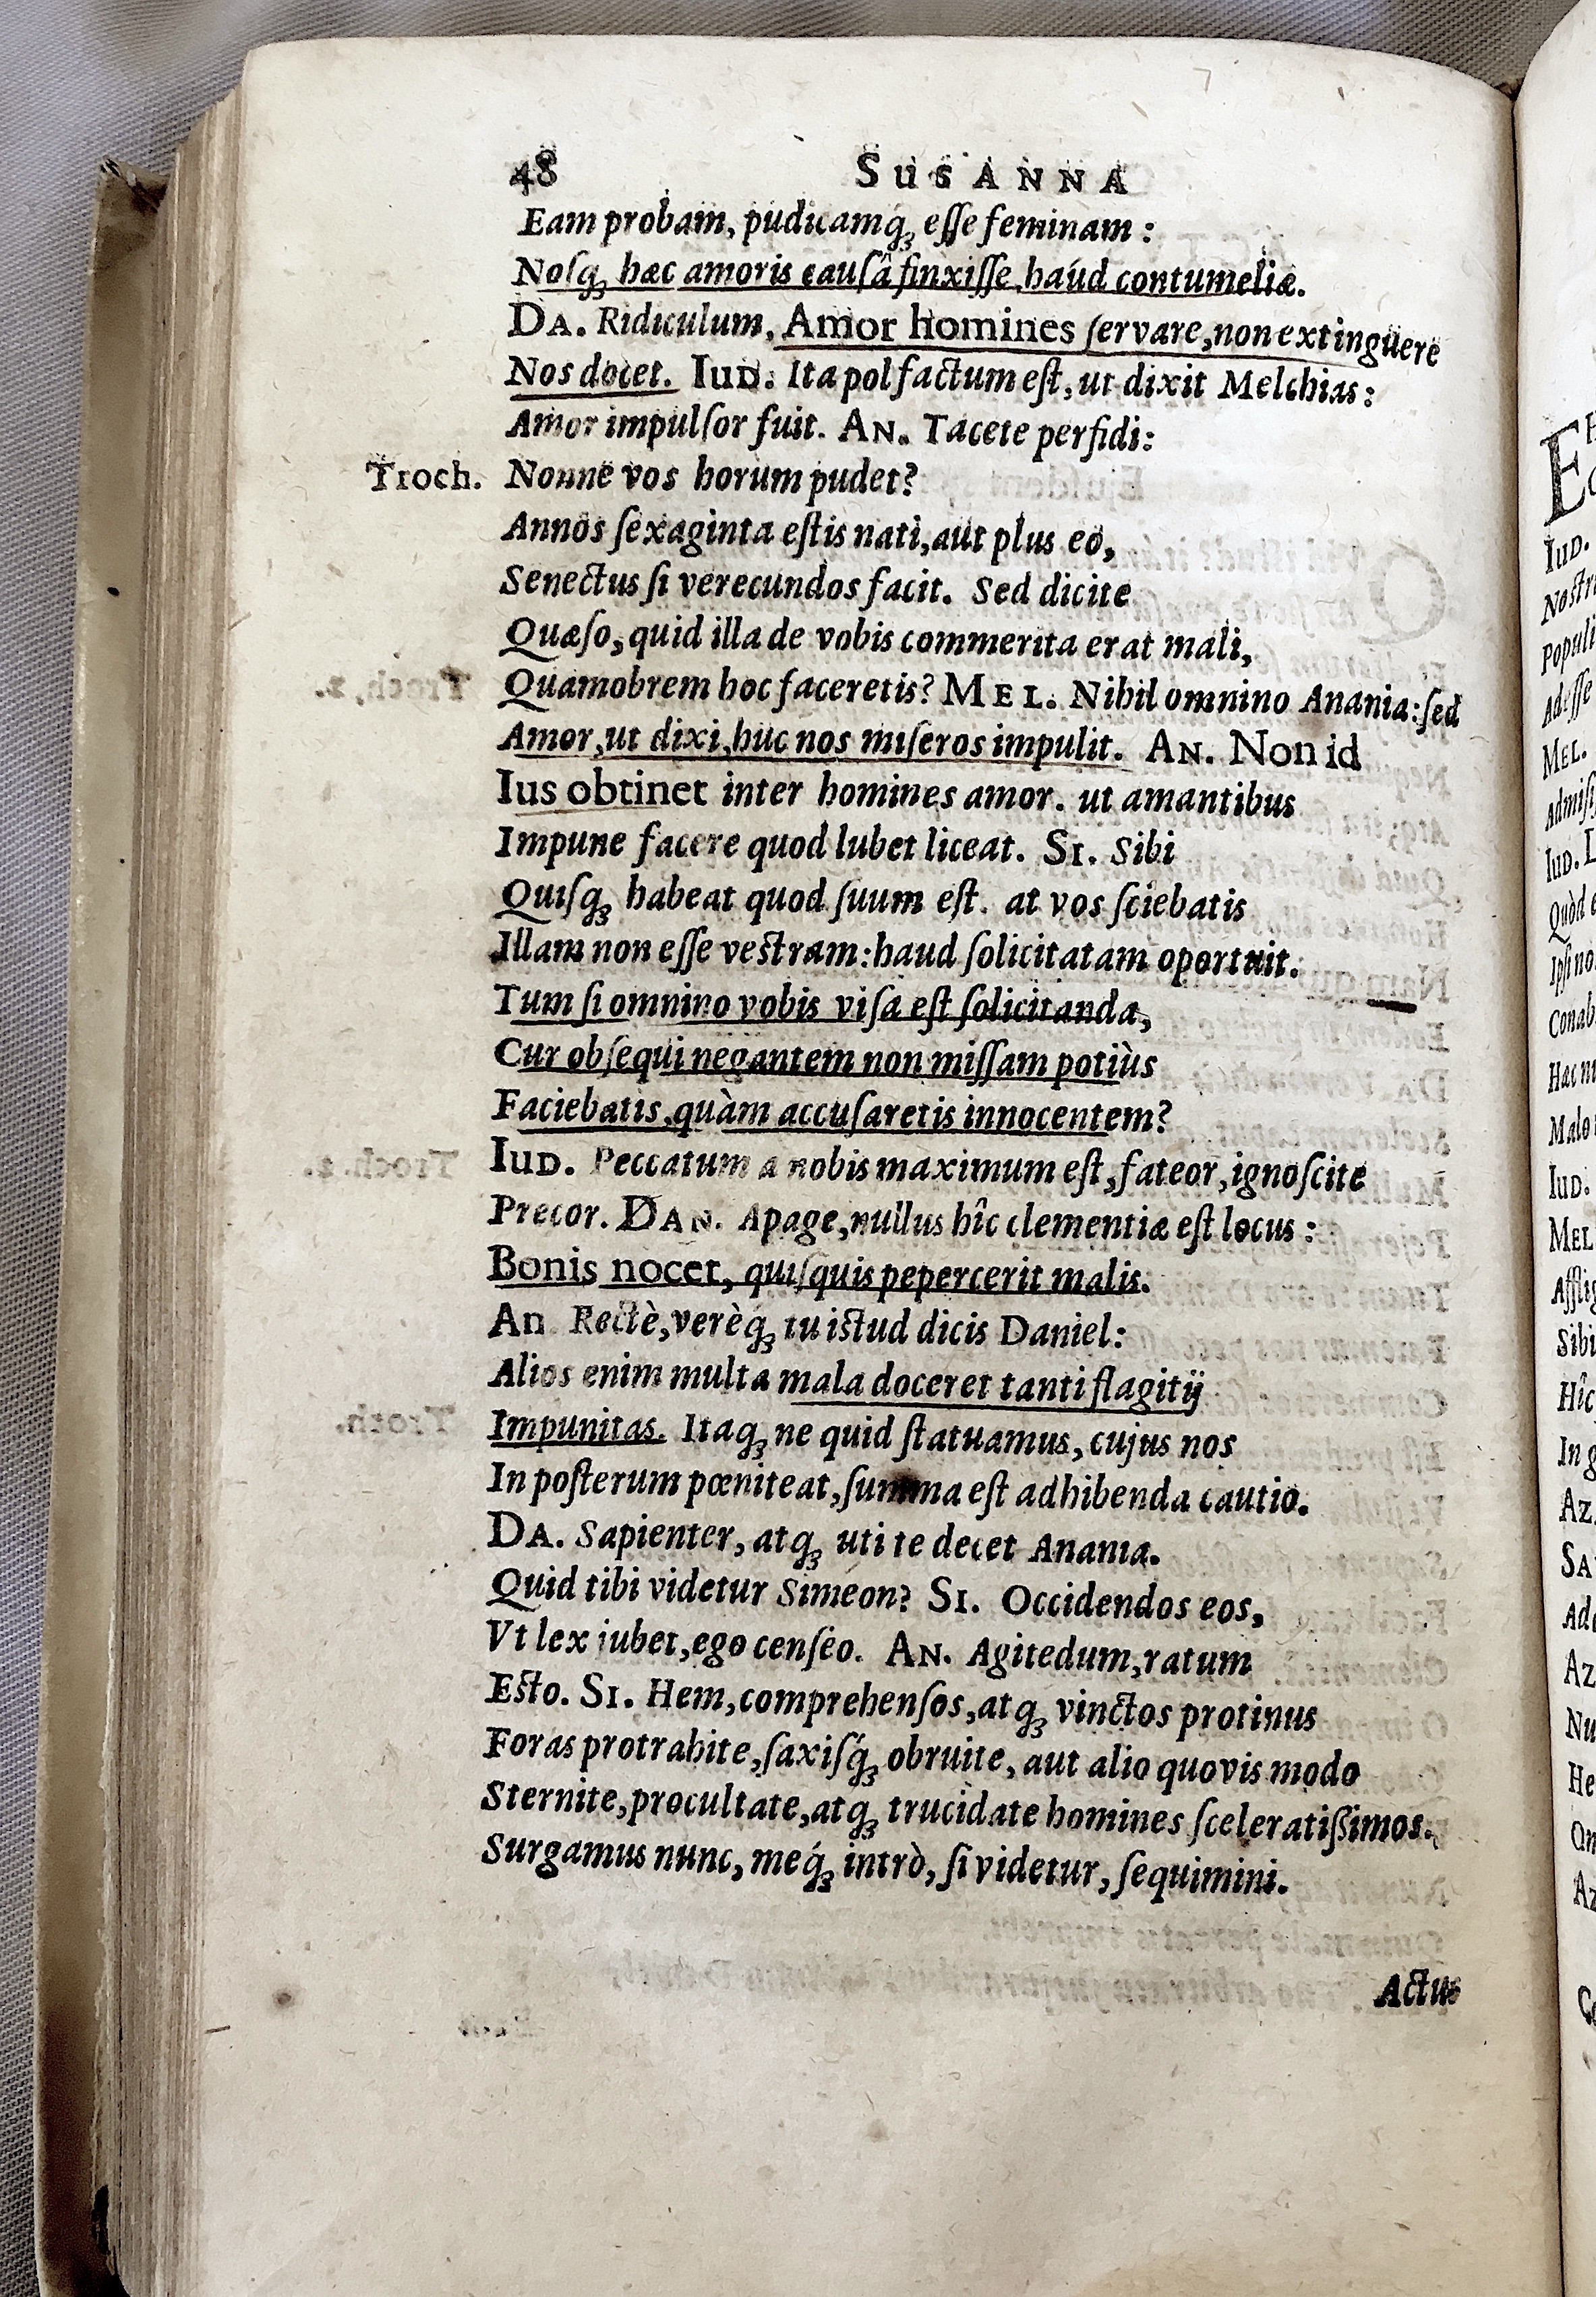 48 SUSANNA
Eam probam, pudicamq́ꝫ eſſe feminam :
Noſqꝫ hæc amoris cauſâ finxiſſe, haúd contumeliæ.
DA. Ridiculum. Amor homines ſervare, non extinguere
Nos docet. IUD. Ita pol factum eſt, ut dixit Melchias :
Amor impulſor fuit. AN. Tacete perfidi :
Troch. Nonne vos horum pudet?
Annos ſexaginta eſtis nati, aut plus eo,
Senectus ſi verecundos facit. Sed dicite
Quæſo, quid illa de vobis commerita erat mali,
Quamobrem hoc faceretis? MEL. Nihil omnino Anania: ſed
Amor, ut dixi, huc nos miſeros impulit. AN. Non id
Ius obtinet inter homines amor. ut amantibus
Impune facere quod lubet liceat. SI. Sibi
Quiſqꝫ habeat quod ſuum eſt. at vos ſciebatis
Illam non eſſe veſtram: haud ſolicitatam oportuit.
Tum ſi omnino vobis viſa eſt ſolicitanda,
Cur obſequi negantem non miſſam potiùs
Faciebatis, quàm accuſaretis innocentem?
IUD. Peccatum a nobis maximum eſt, fateor, ignoſcite
Precor. DAN. Apage, nullus hîc clementiæ eſt locus :
Bonis nocet, quiſquis pepercerit malis.
An Rectè, verèq́ꝫ tu iſtud dicis Daniel:
Alios enim multa mala doceret tanti flagitij
Impunitas. Itaqꝫ ne quid ſtatuamus, cujus nos
In poſterum pœniteat, ſumma eſt adhibenda cautio.
DA. Sapienter, atqꝫ uti te decet Anania.
Quid tibi videtur Simeon? SI. Occidendos eos,
Vt lex iubet, ego cenſeo. AN. Agitedum, ratum
Eſto. SI. Hem, comprehenſos, atqꝫ vinctos protinus
Foras protrahite, ſaxiſq́ꝫ obruite, aut alio quovis modo
Sternite, procultate, atqꝫ trucidate homines ſceleratißimos.
Surgamus nunc, meq́ꝫ intrò, ſi videtur, ſequimini.
Actus